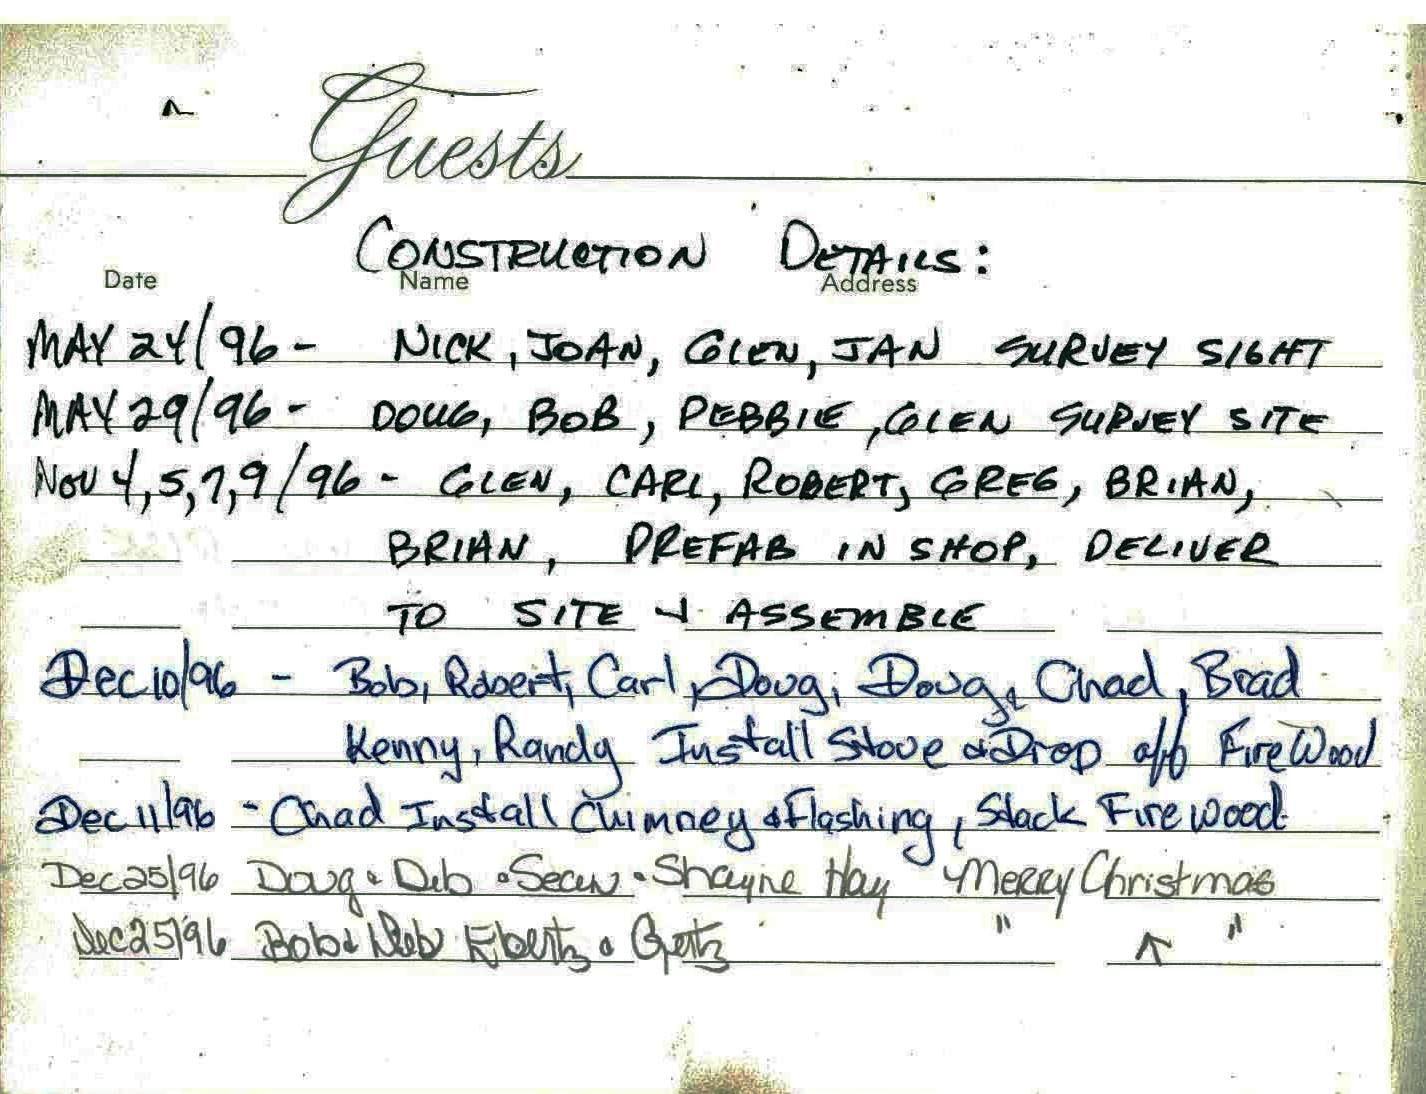 Guests
CONSTRUCTION DETAILS:
Date Name Address
MAY 24/96 - NICK, JOAN, GLEN, JAN SURVEY SIGHT
MAY 29/96 - DOUG, BOB, DEBBIE, GLEN SURVEY SITE
NOV 4,5,7,9/96 - GLEN, CARL, ROBERT, GREG, BRIAN,
BRIAN, PREFAB IN SHOP, DELIVER
TO SITE & ASSEMBLE
Dec 10/96 - Bob, Robert, Carl, Doug, Doug, Chad, Brad
Kenny, Randy Install Stove & Drop off FireWood
Dec 11/96 - Chad Install Chimney & Flashing, Stack Firewood
Dec 25/96 Doug & Deb & Sean & Shayne Hay Merry Christmas
Dec 25/96 Bob & Deb Ebertz & " "